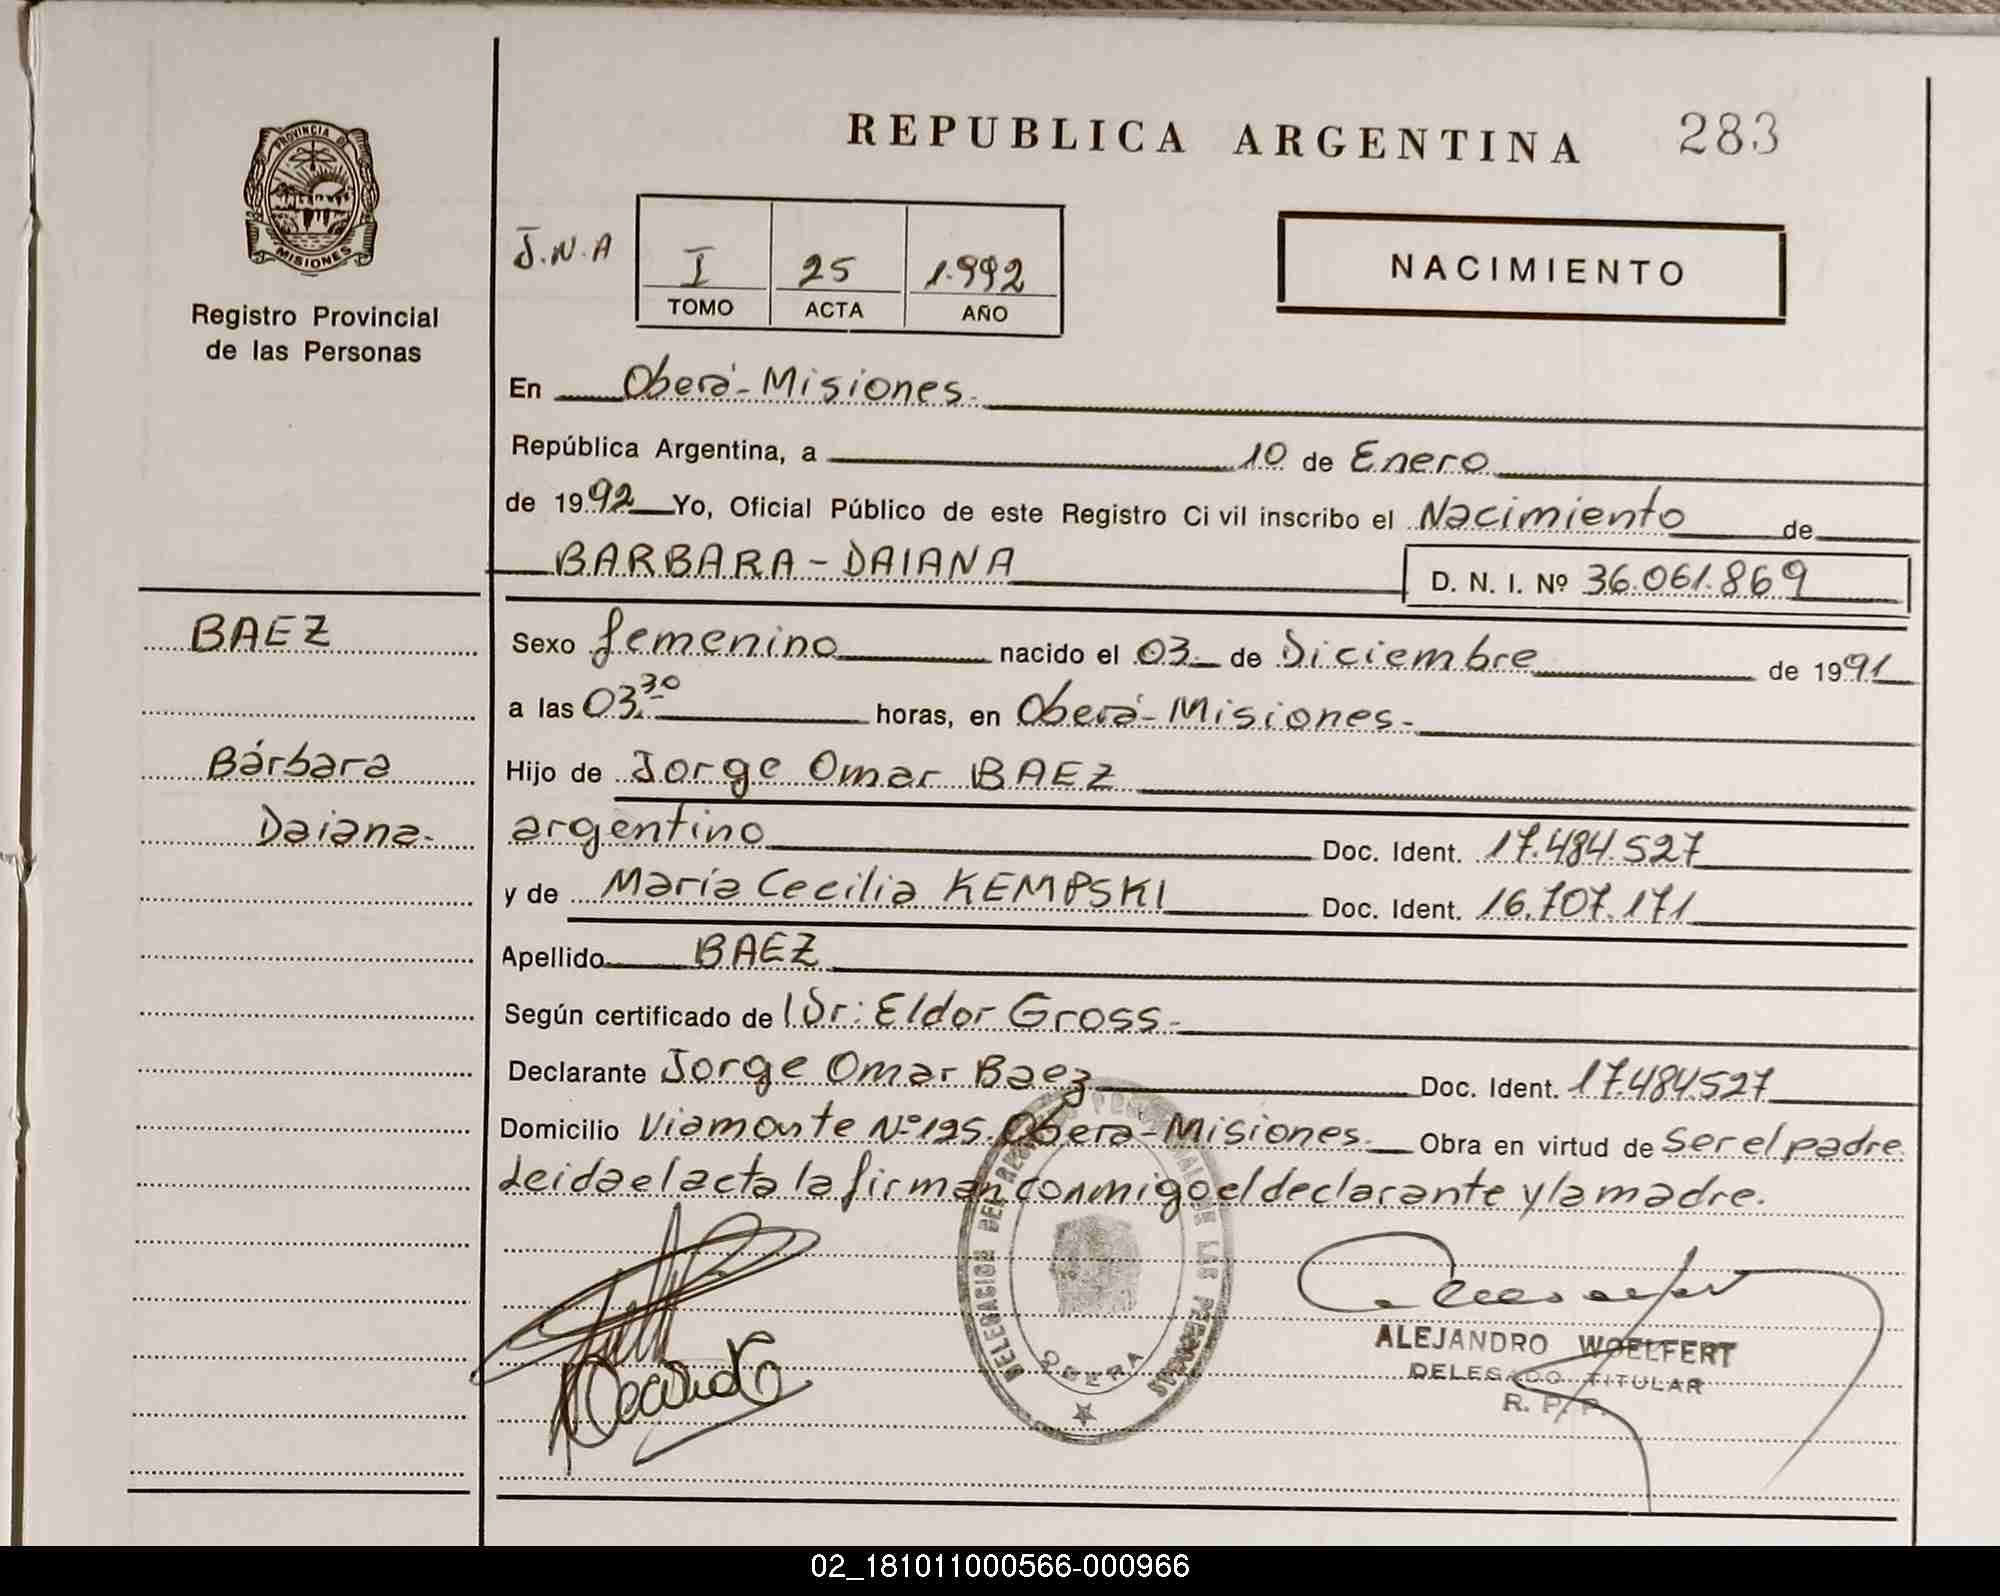 REPUBLICA ARGENTINA 283
PROVINCIA DE
MISIONES
Registro Provincial
de las Personas
J.N.A
I 25 1.992
TOMO ACTA AÑO
NACIMIENTO
En Oberá-Misiones.
República Argentina, a 10 de Enero
de 1992 Yo, Oficial Público de este Registro Ci vil inscribo el Nacimiento de
BARBARA-DAIANA D. N. I. Nº 36.061.869
BAEZ
Bárbara
Daiana.
Sexo femenino nacido el 03 de Diciembre de 1991
a las 03.30 horas, en Oberá-Misiones.
Hijo de Jorge Omar BAEZ
argentino Doc. Ident. 17.484.527
y de María Cecilia KEMPSKI Doc. Ident. 16.707.171
Apellido BAEZ
Según certificado de Dr: Eldor Gross.
Declarante Jorge Omar Baez Doc. Ident. 17.484.527
Domicilio Viamonte Nº 195. Oberá-Misiones. Obra en virtud de ser el padre
Leida el acta la firman conmigo el declarante y la madre.
DELEGACION DEL REGISTRO PROVINCIAL DE LAS PERSONAS
OBERA
ALEJANDRO WOELFERT
DELEGADO TITULAR
R. P. P.
02_181011000566-000966